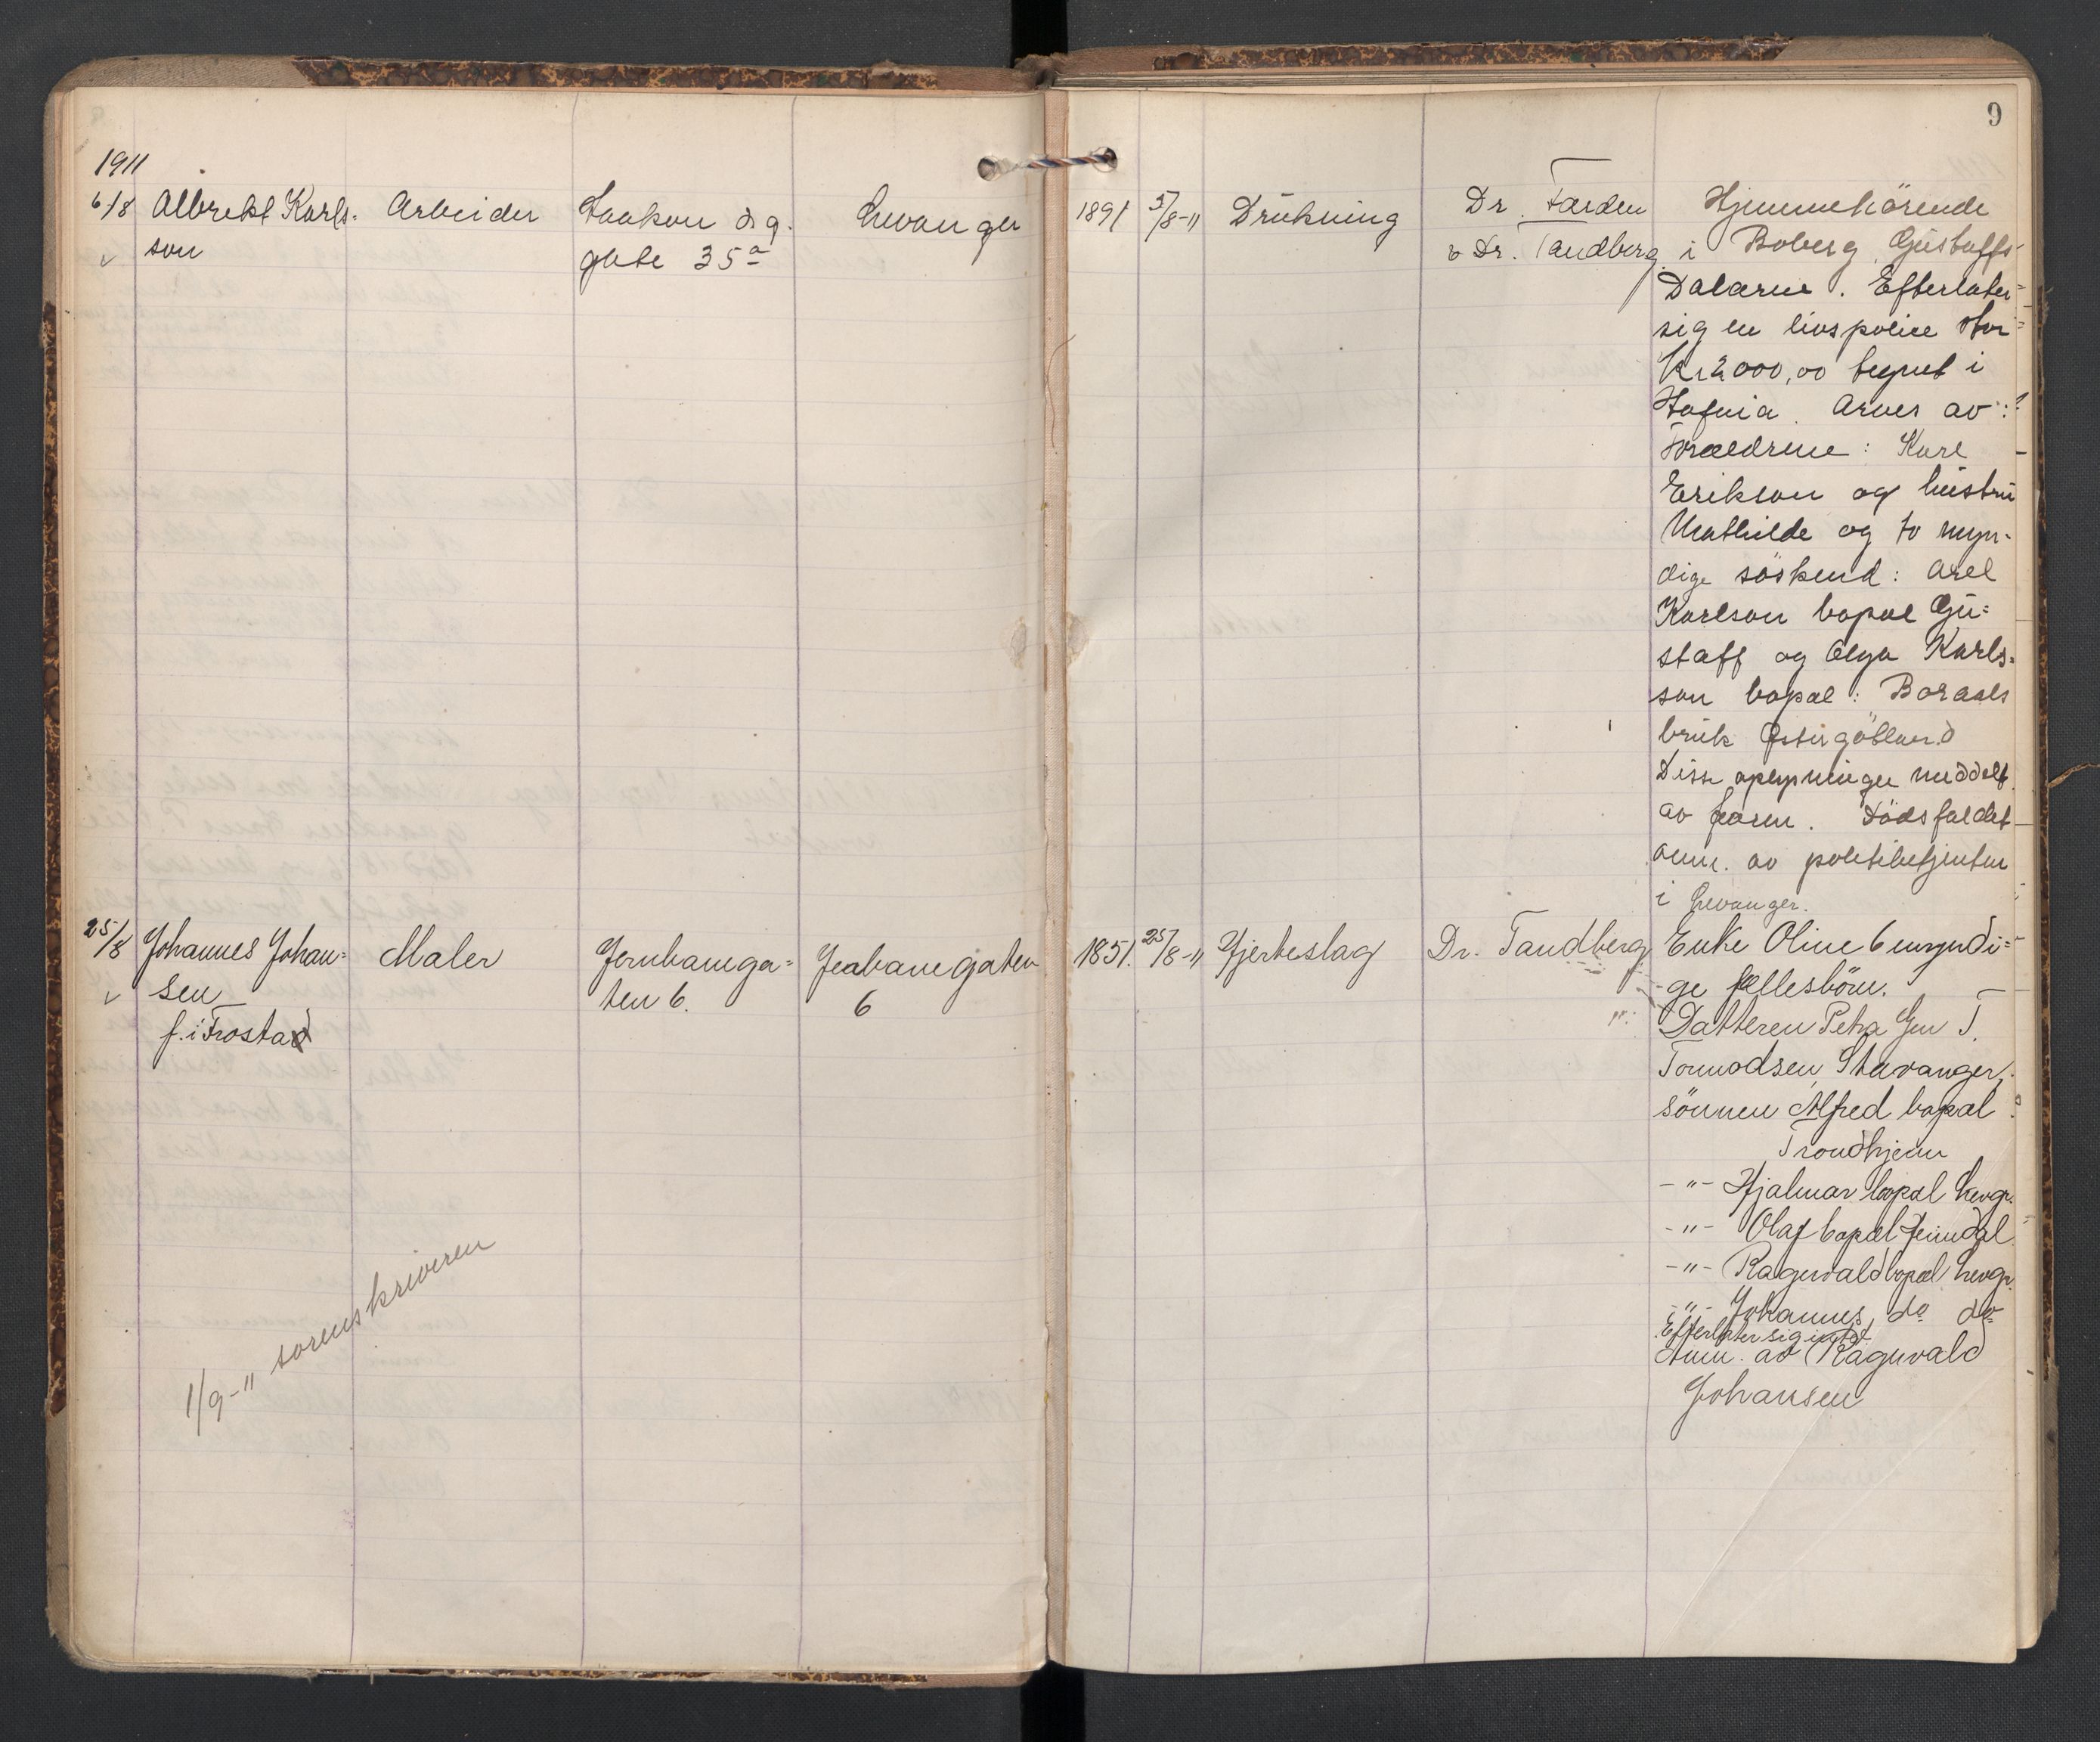 9
1911
6/8 Albrekt Karls- Arbeider Haakon d. 9. Levanger 1891 5/8-11 Drukning Dr. Farden Hjemmehörende
son gate 35a Dr. Tandberg i Boberg, Gustaffs
Dalarne. Efterlater
sig en livspolice stor
Kr 2000,00 tegnet i
Hafnia. Arves av:
Foræeldrene: Karl
Erikson og hustru
Mathilde og to myn-
dige söskend: Axel
Karlson bopæl Gu=
staff og Olga Karls=
son bopæl: Boraals
bruk Østergötland
Disse oplysninger meddelt
av faren. Dödsfaldet
anm. av politibetjenten
i Levanger.
25/8 Johannes Johan= Maler Jernbanega= Jeabanegaten 1851. 25/8-11 Hjerteslag Dr. Tandberg Enke Oline 6 umyndi=
sen ten 6. 6 ge fællesbörn.
f. i Frostad Datteren Petra Gm T.
Tormodsen, Stavanger,
sönnen Alfred bopæl
Trondhjem
-"- Hjalmar bopæl Levgr.
-"- Olaf bopæl Jemdal
-"- Ragnvald bopæl Levgr.
-"- Johannes, do do
Efterlater sig intet
Anm. av Ragnvald
Johansen
1/9-11 sorenskriveren